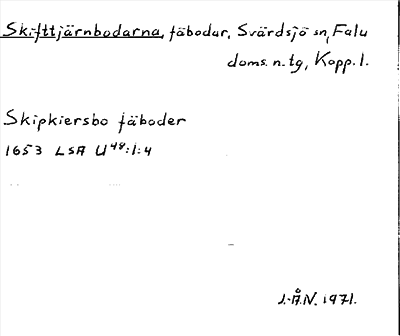 Skifttjärnbodarna, fäbodar, Svärdsjö sn, Falu
doms. n. tg, Kopp. l.
Skipkiersbo fäboder
1653 LSA U48:1:4
J.Å.N. 1971.